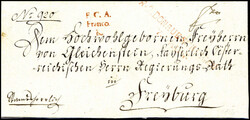 No 920
F. C. A.
Franco
Dem Hochwohlgebornen Freyherrn
von Gleichenstein, Kayserlich Oester-
reichischen Herrn Regierungs Rath
in
Freyburg